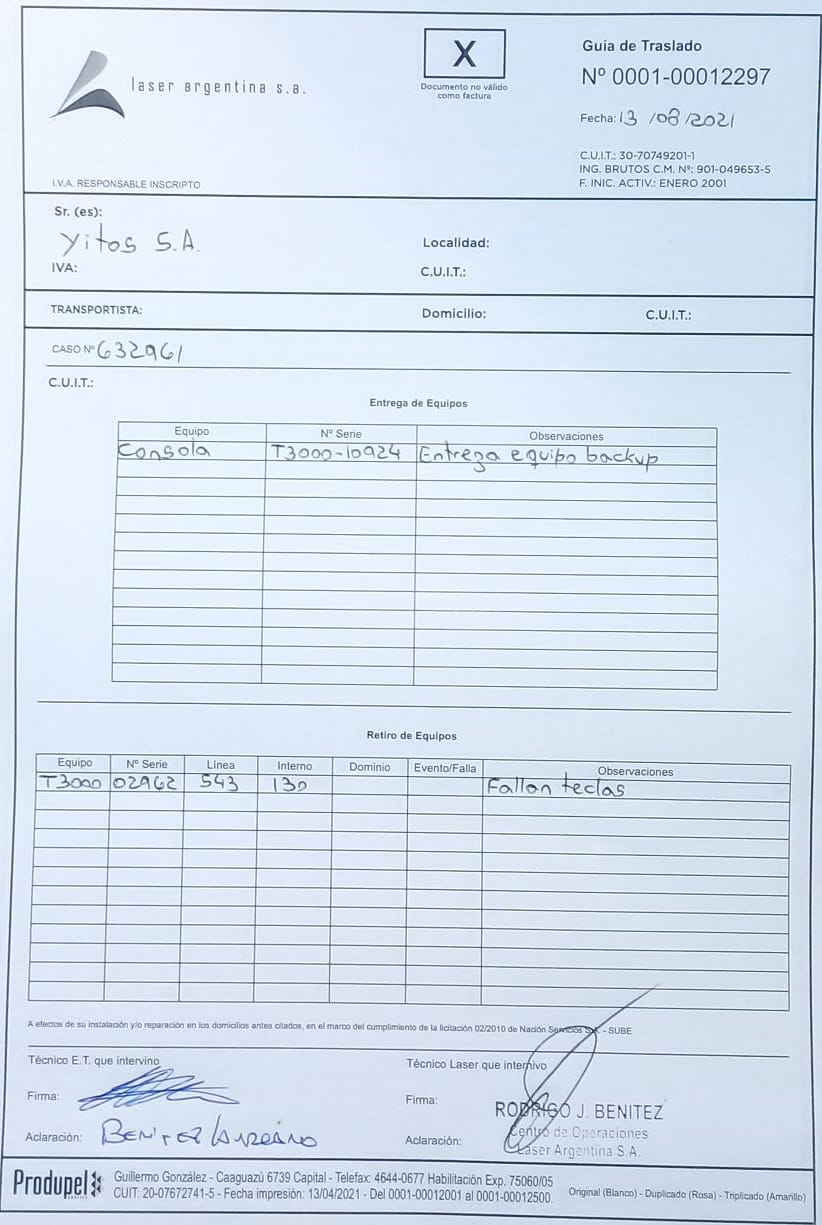 laser argentina s.a.
X
Documento no válido
como factura
Guía de Traslado
Nº 0001-00012297
Fecha: 13 /08/2021
C.U.I.T.: 30-70749201-1
ING. BRUTOS C.M. Nº: 901-049653-5
F. INIC. ACTIV.: ENERO 2001
I.V.A. RESPONSABLE INSCRIPTO
Sr. (es):
Yitos S.A.
Localidad:
IVA:
C.U.I.T.:
TRANSPORTISTA:
Domicilio:
C.U.I.T.:
CASO Nº 632961
C.U.I.T.:
Entrega de Equipos
Equipo Nº Serie Observaciones
Consola T3000-10924 Entrega equipo backup
Retiro de Equipos
Equipo Nº Serie Línea Interno Dominio Evento/Falla Observaciones
T3000 02962 543 130 Fallan teclas
A efectos de su instalación y/o reparación en los domicilios antes citados, en el marco del cumplimiento de la licitación 02/2010 de Nación Servicios S.A. - SUBE
Técnico E.T. que intervino
Técnico Laser que intervivo
Firma:
Firma:
RODRIGO J. BENITEZ
Centro de Operaciones
Laser Argentina S.A.
Aclaración: BENITEZ
Aclaración:
Produpel
Guillermo González - Caaguazú 6739 Capital - Telefax: 4644-0677 Habilitación Exp. 75060/05
CUIT: 20-07672741-5 - Fecha impresión: 13/04/2021 - Del 0001-00012001 al 0001-00012500.
Original (Blanco) - Duplicado (Rosa) - Triplicado (Amarillo)